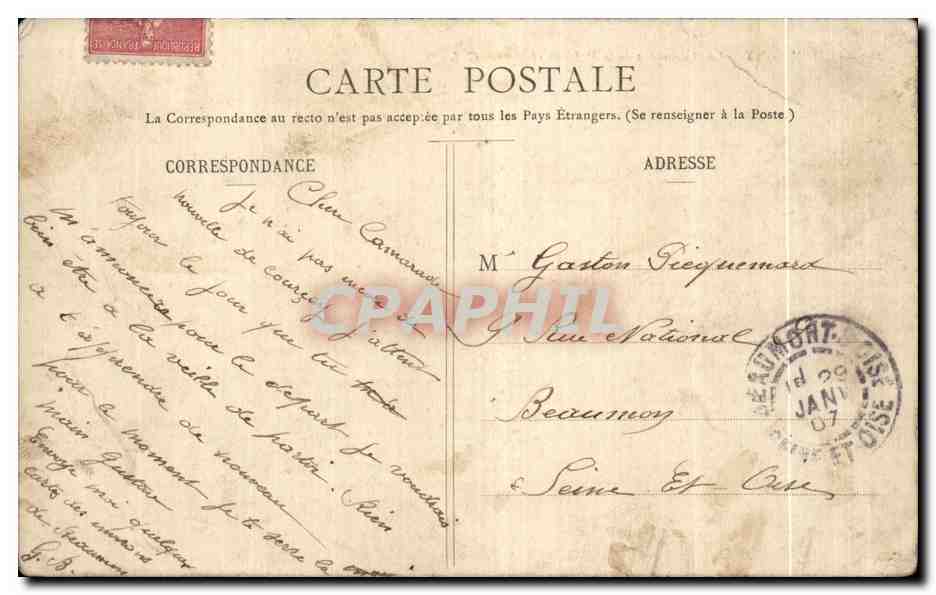 RÉPUBLIQUE FRANÇAISE
CARTE POSTALE
La Correspondance au recto n'est pas acceptée par tous les Pays Étrangers. (Se renseigner à la Poste)
CORRESPONDANCE
ADRESSE
Cher Camarade
Je n'ai pas mal et
nouvelle de courage j'attend
toujour le jour que tu
m'annoncera pour le depart Je voudrais
bien être à la veille de partir. Rien
à t'apprendre de nouveau
pour le moment Je te serre la
main Gustave
Envoye moi quelque
carte des environs
de Beaumon
G. B.
Mr Gaston Picquemard
9 Rue National
Beaumon
Seine Et Oise
BEAUMONT-S-OISE
29
JANV
07
SEINE ET OISE
CPAPHIL